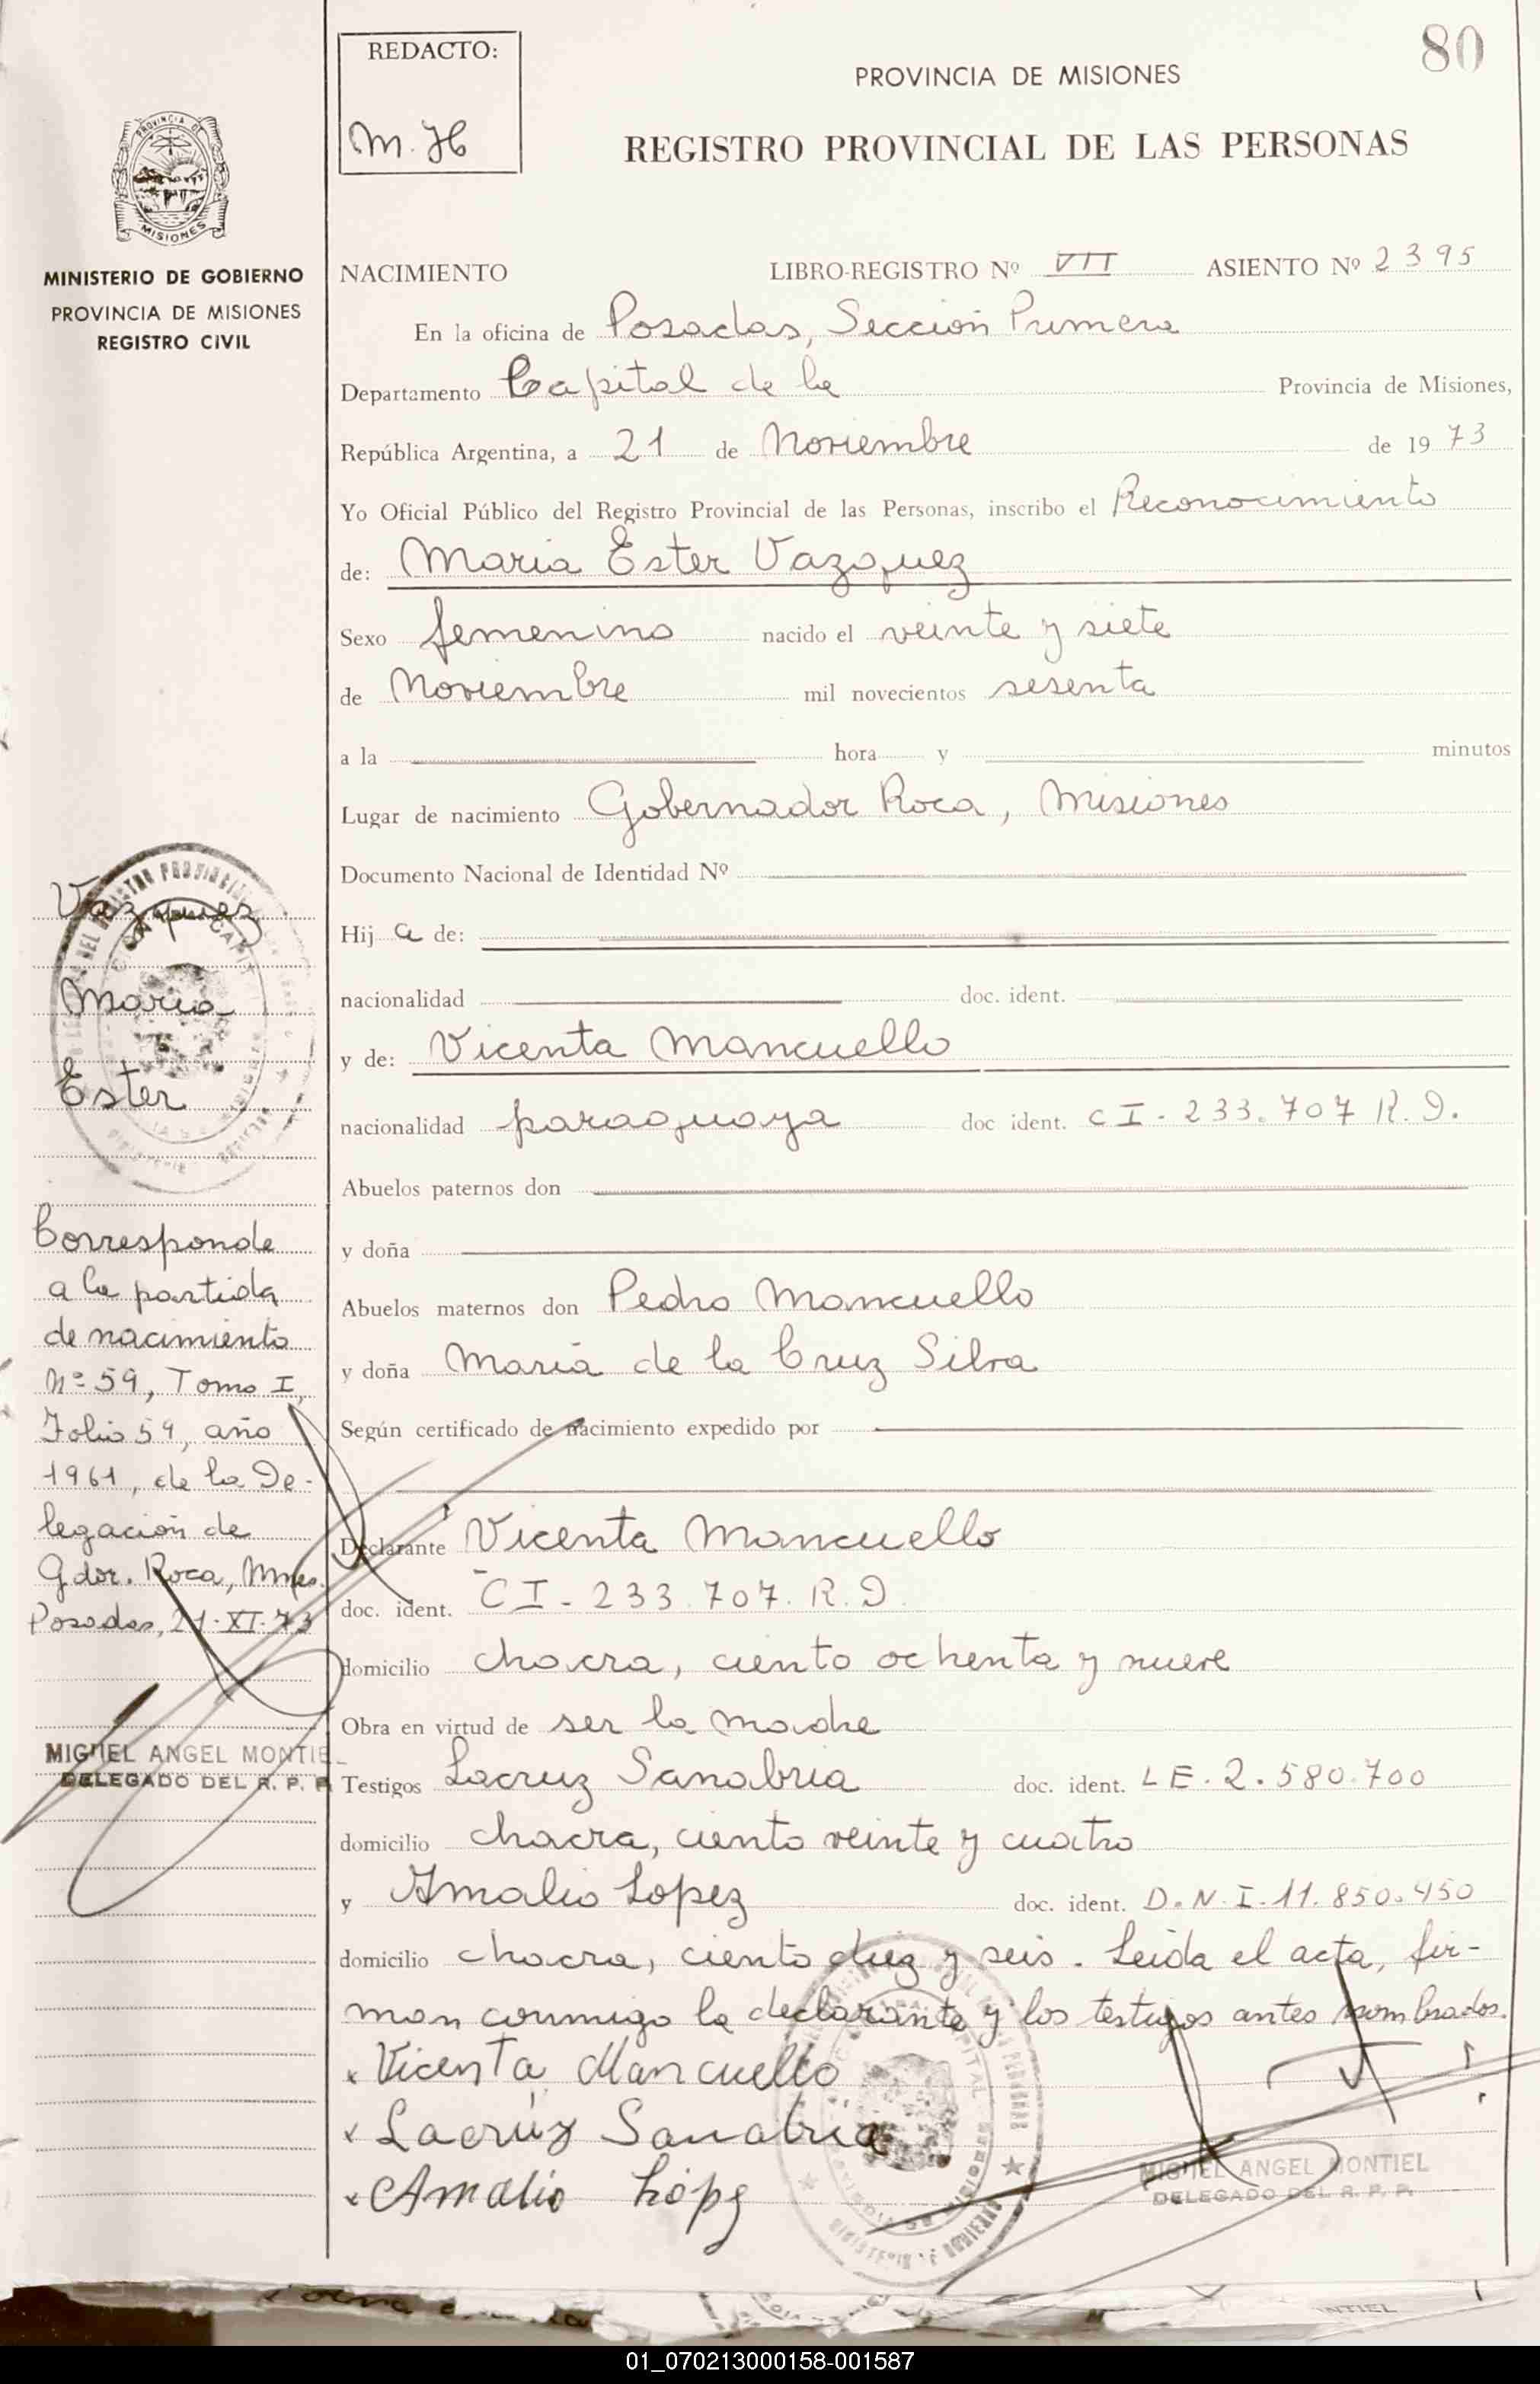 80
REDACTO:
M. H
PROVINCIA DE MISIONES
REGISTRO PROVINCIAL DE LAS PERSONAS
PROVINCIA DE
MISIONES
MINISTERIO DE GOBIERNO
PROVINCIA DE MISIONES
REGISTRO CIVIL
NACIMIENTO LIBRO-REGISTRO Nº VII ASIENTO Nº 2395
En la oficina de Posadas, Sección Primera
Departamento Capital de la Provincia de Misiones,
República Argentina, a 21 de Noviembre de 1973
Yo Oficial Público del Registro Provincial de las Personas, inscribo el Reconocimiento
de: Maria Ester Vazquez
Sexo femenino nacido el veinte y siete
de Noviembre mil novecientos sesenta
a la hora y minutos
Lugar de nacimiento Gobernador Roca, Misiones
Documento Nacional de Identidad Nº
Hij a de:
nacionalidad doc. ident.
y de: Vicenta Mancuello
nacionalidad paraguaya doc ident. CI-233.707 R.D.
Abuelos paternos don
y doña
Abuelos maternos don Pedro Mancuello
y doña Maria de la Cruz Silva
Según certificado de nacimiento expedido por
Declarante Vicenta Mancuello
doc. ident. CI-233.707.R.D
domicilio chacra, ciento ochenta y nueve
Obra en virtud de ser la madre
Testigos Lacruz Sanabria doc. ident. LE.2.580.700
domicilio chacra, ciento veinte y cuatro
y Amalio Lopez doc. ident. D.N.I-11.850.450
domicilio chacra, ciento diez y seis. Leida el acta, fir-
man conmigo la declarante y los testigos antes nombrados.
x Vicenta Mancuello
x Lacrúz Sanabria
x Amalio Lópz
MIGUEL ANGEL MONTIEL
DELEGADO DEL R. P. P.
Vazquez
Maria
Ester
Corresponde
a la partida
de nacimiento
Nº 59, Tomo I,
Folio 59, año
1961, de la De-
legación de
Gdor. Roca, Mnes.
Posadas, 21-XI-73
MIGUEL ANGEL MONTIE
DELEGADO DEL R. P. P
01_070213000158-001587